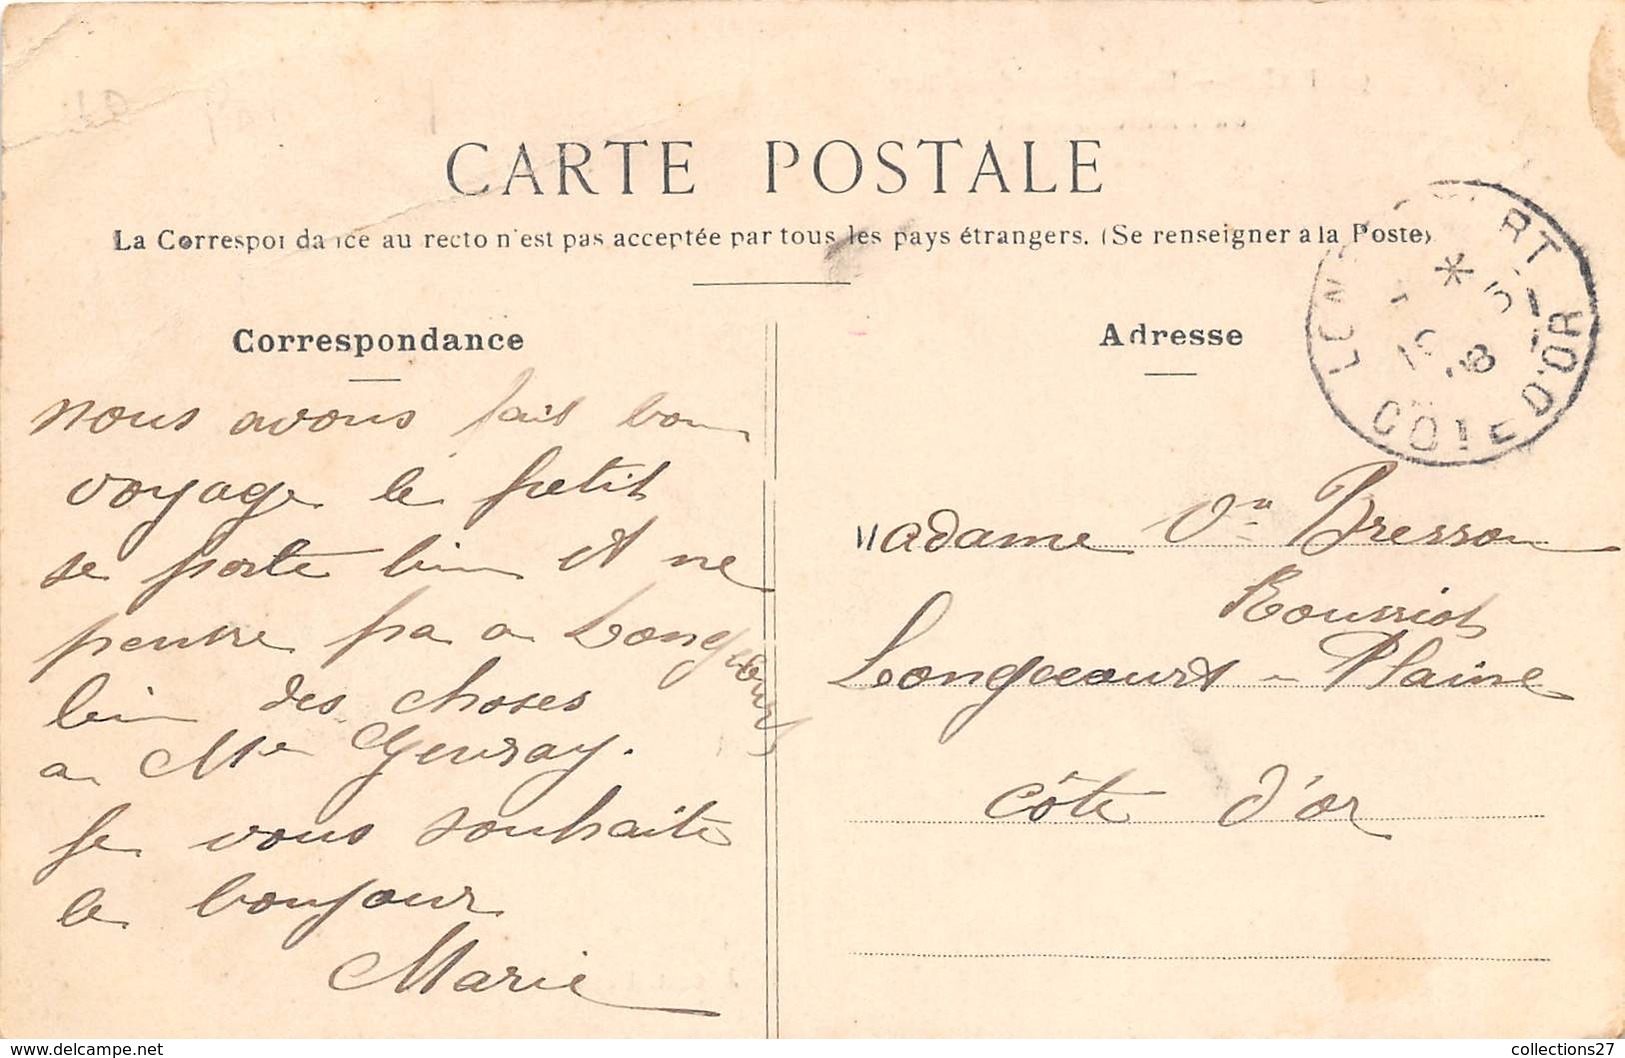 CARTE POSTALE
La Correspondance au recto n'est pas acceptée par tous les pays étrangers. (Se renseigner a la Poste)
Correspondance
nous avons fait bon
voyage le petit
se porte bien et ne
pensse pa a Longecourt
bien des choses
a Mme
Je vous souhaite
le bonjour
Marie
Adresse
COTE D'OR
Madame Vve Bresson
Roussiot
Longecourt - Plaine
Côte d'or
collections27